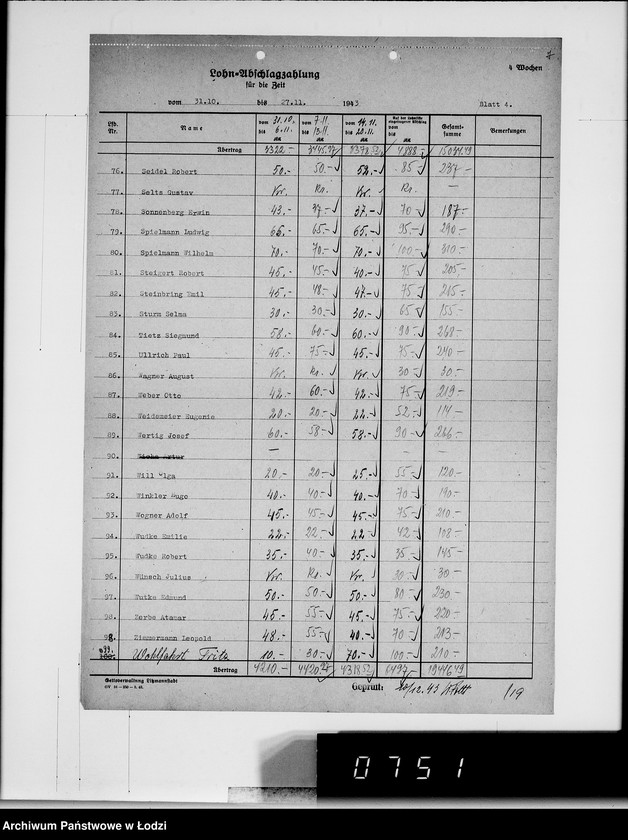 7
Lohn-Abschlagzahlung
4 Wochen
für die Zeit
vom 31.10. bis 27.11. 1943
Blatt 4.
Lfd. Nr. Name vom 31.10. bis 6.11. vom 7.11. bis 13.11. vom 14.11. bis 20.11. vom bis Gesamt-summe Bemerkungen
Übertrag 3322.-
76. Seidel Robert 50.- 50.- 52.- 85 237-
77. Selts Gustav Kr. Kr. Kr. Kr. —
78. Sonnenberg Erwin 43.- 37- 37.- 70 187.-
79. Spielmann Ludwig 65.- 65.- 65.- 95.- 290-
80. Spielmann Wilhelm 70.- 70.- 70.- 100- 310.-
81. Steigert Robert 45.- 45.- 40.- 75 205-
82. Steinbring Emil 45.- 48.- 47.- 75 215-
83. Sturm Selma 30.- 30.- 30.- 65 155-
84. Tietz Siegmund 58.- 60.- 60.- 90- 268-
85. Ullrich Paul 45.- 75- 45.- 75- 240-
86. Wagner August Kr. Kr. Kr. 30- 30.-
87. Weber Otto 42.- 60.- 42.- 75 219-
88. Weidemeier Eugenie 20.- 20- 22.- 52.- 114-
89. Wertig Josef 60.- 58- 58.- 90- 266-
90. Wicha Artur — - -
91. Will Olga 20.- 20- 25.- 55- 120.-
92. Winkler Hugo 40.- 40- 40.- 70- 190.-
93. Wogner Adolf 45.- 45- 45.- 75- 210-
94. Wudke Emilie 22.- 22.- 22.- 42- 108-
95. Wudke Robert 35.- 40- 35.- 35- 145-
96. Wünsch Julius Kr. Kr. Kr. 30- 30-
97. Wutke Edmund 50.- 50.- 50.- 80- 230-
98. Zerbe Atamar 45.- 55- 45.- 75- 220-
98. Zimmermann Leopold 48.- 55- 40.- 70- 213-
99. Wohlfahrt Fritz 10.- 30.- 70.- 100- 210.-
Übertrag 4210.-
Gettoverwaltung Litzmannstadt
Geprüft: 20/12.43
1/19
0751
Archiwum Państwowe w Łodzi